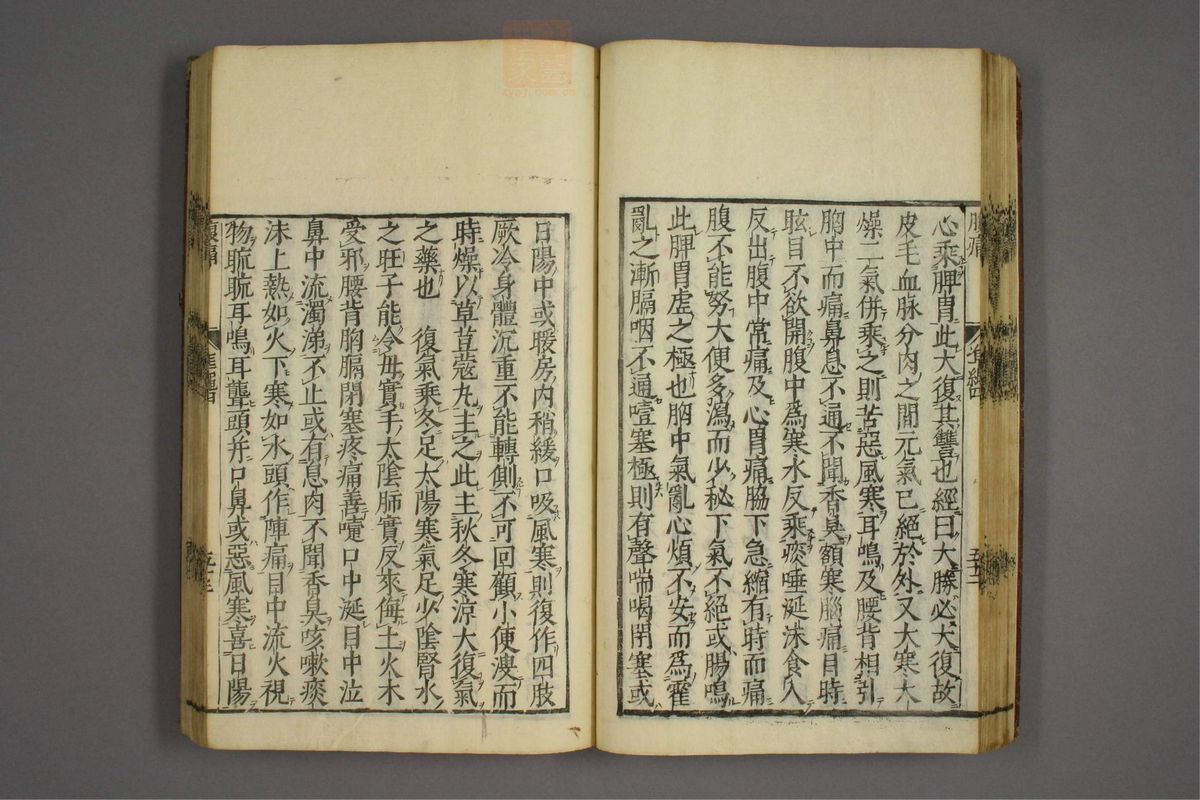 心乘脾胃此大復其讐也經曰大勝必大復故
皮毛血脉分肉之間元氣已絕於外又大寒大
燥二氣併乘之則苦惡風寒耳鳴及腰背相引
胸中而痛鼻息不通不聞香臭額寒腦痛目時
眩目不欲開腹中爲寒水反乘痰唾涎沫食入
反出腹中常痛及心胃痛脇下急縮有時而痛
腹不能努大便多瀉而少秘下氣不絕或腸鳴
此脾胃虛之極也胸中氣亂心煩不安而爲霍
亂之漸膈咽不通噎塞極則有聲喘喝閉塞或
日陽中或暖房內稍緩口吸風寒則復作四肢
厥冷身體沉重不能轉側不可回顧小便溲而
時燥以草荳蔻丸主之此主秋冬寒涼大復氣
之藥也　復氣乘冬足太陽寒氣足少陰腎水
之旺子能令母實手太陰肺實反來侮土火木
受邪腰背胸膈閉塞疼痛善嚔口中涎目中泣
鼻中流濁涕不止或有息肉不聞香臭咳嗽痰
沫上熱如火下寒如水頭作陣痛目中流火視
物䀮䀮耳鳴耳聾頭并口鼻或惡風寒喜日陽
腹痛